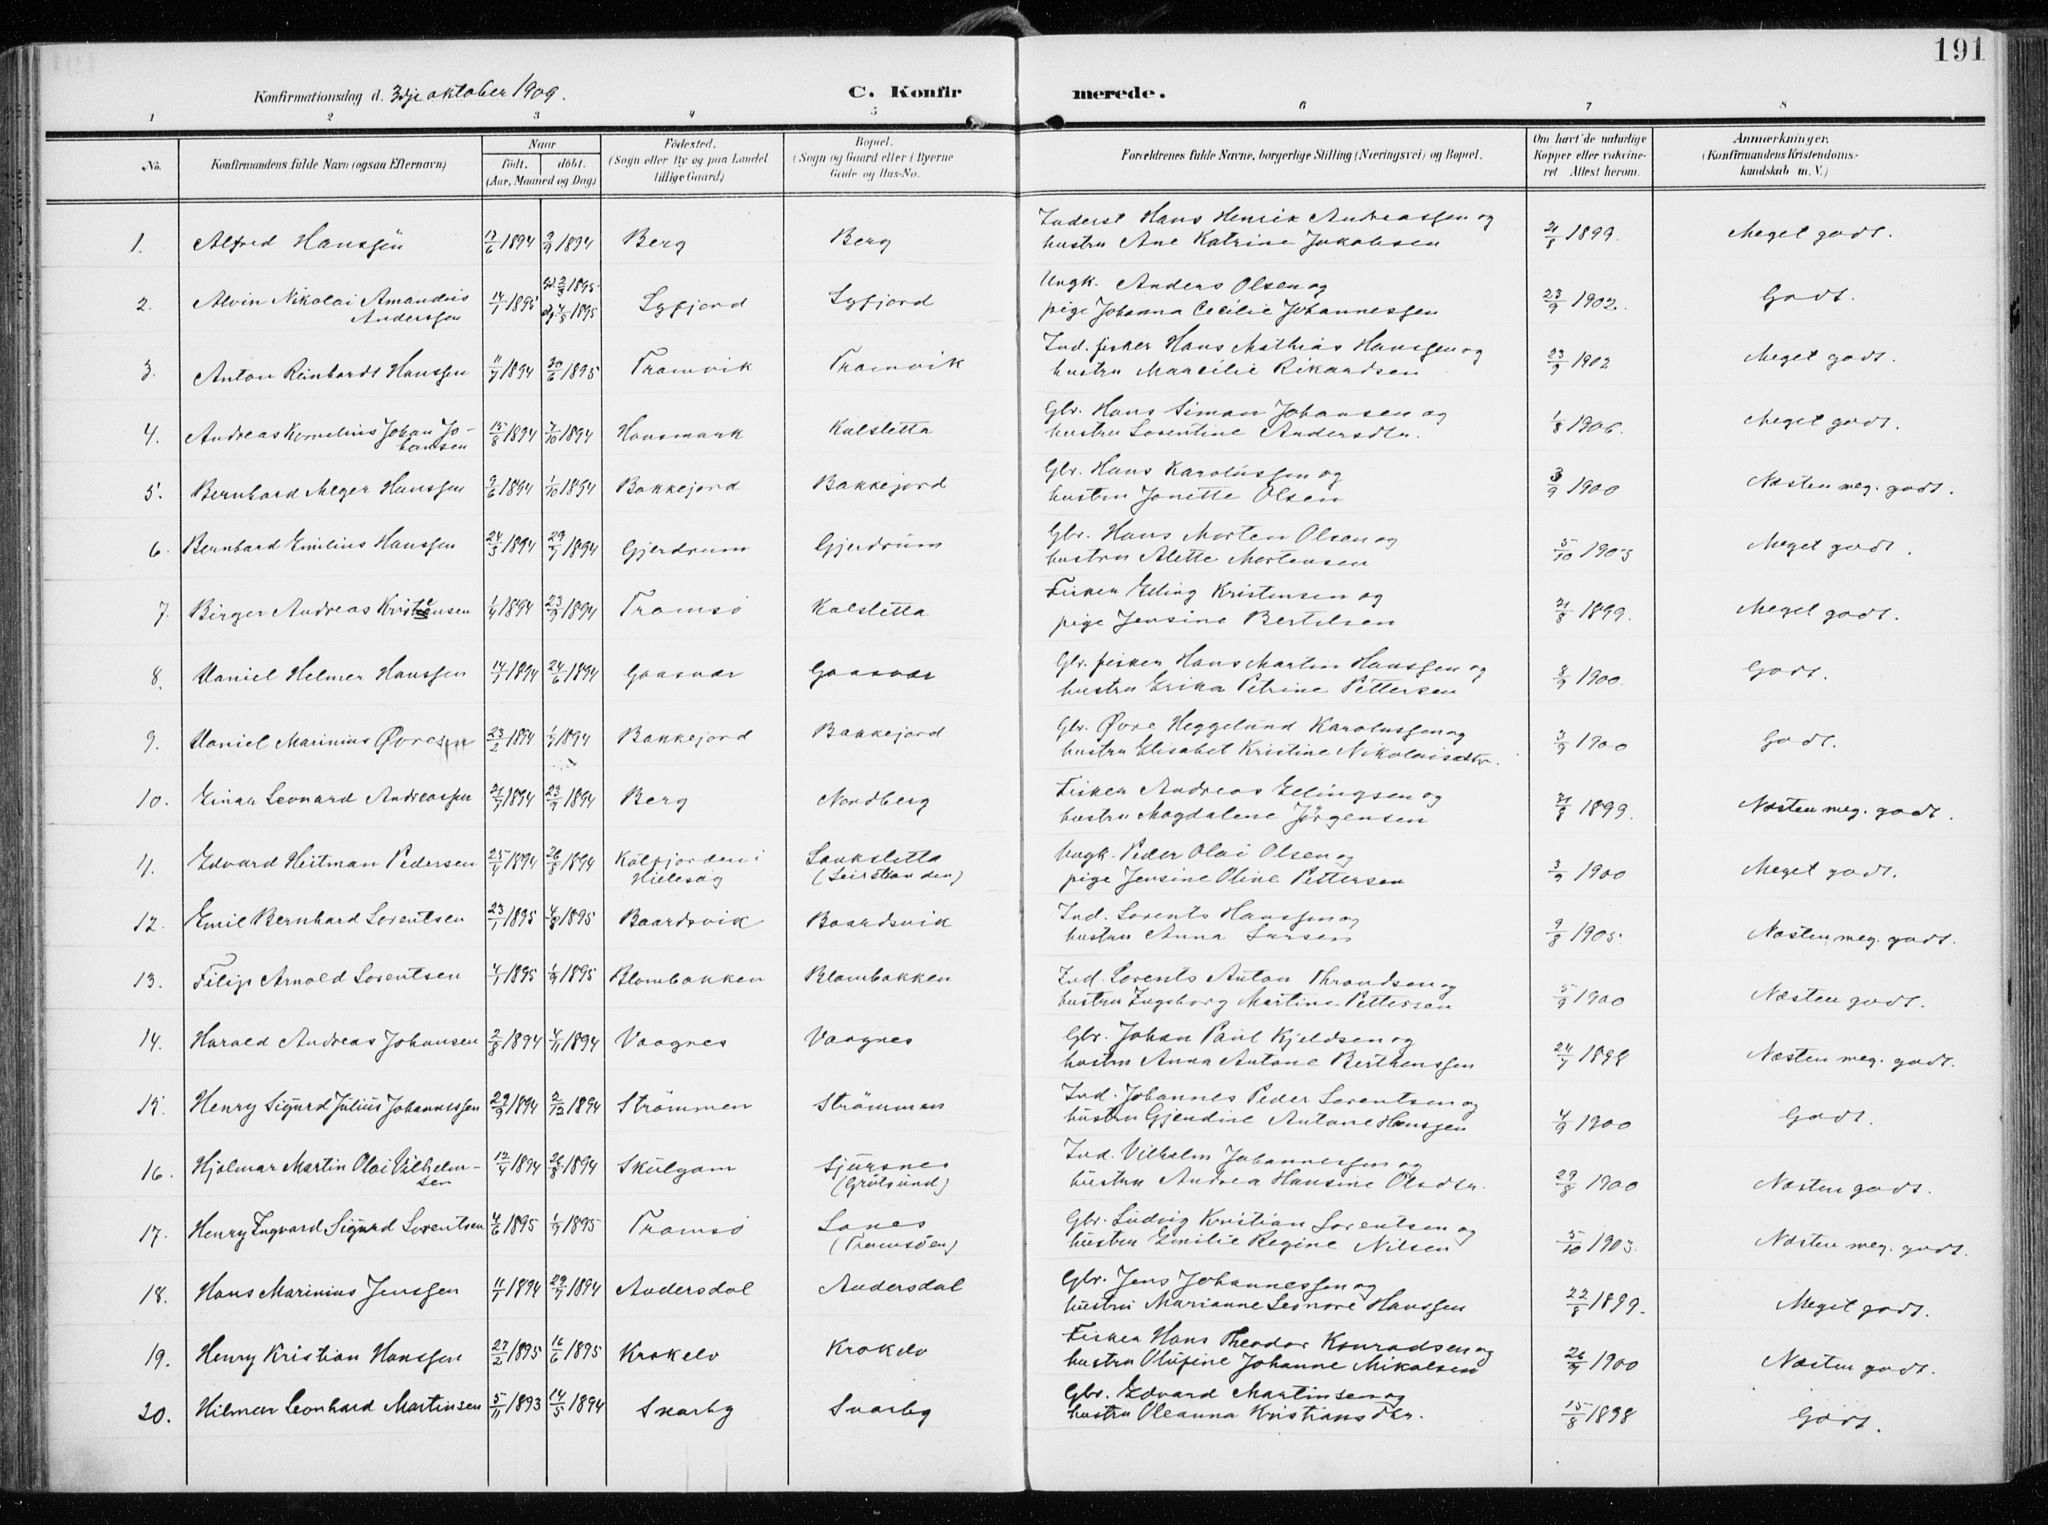 191
Konfirmationsdag d. 3dje oktober 1909.
C. Konfirmerede.
1 2 3 4 5 6 7 8
No. Konfirmandens fulde Navn (ogsaa Efternavn) Naar født. døbt. (Aar, Maaned og Dag) Fødested. (Sogn eller By og paa Landet tillige Gaard) Bopæl. (Sogn og Gaard eller i Byerne Gade og Hus-No. Forældrenes fulde Navne, borgerlige Stilling (Næringsvei) og Bopæl. Om havt de naturlige Kopper eller vakcineret Attest herom. Anmærkninger, (Konfirmandens Kristendomskundskab m. V.)
1. Alfred Hanssen 17/6 1894 2/9 1894 Berg Berg Inderst Hans Henrik Andreassen og
hustru Ane Katrine Jakobsen 21/8 1899. Meget godt.
2. Alvin Nikolai Amandus 14/1 1895 Lyfjord Lyfjord Ungk. Anders Olsen og
Anderssen pige Johanna Cecilie Johannessen 23/9 1902. Godt.
3. Anton Reinhardt Hanssen 11/7 1894 30/6 1895 Tromvik Tromvik Ind. fisker Hans Mathias Hanssen og
hustru Marcilie Rikardsen 23/9 1902 Meget godt.
4. Andreas Kornelius Johan Jo- 15/8 1894 7/10 1894 Hansmark Kalsletta Gbr. Hans Simon Johansen og
hansen hustru Lorentine Andersdtr. 1/8 1906. Meget godt.
5. Bernhard Meyer Hanssen 9/6 1894 1/10 1894 Bakkejord Bakkejord Gbr. Hans Karolussen og
hustru Jonette Olsen 3/9 1900 Næsten meg. godt.
6. Bernhard Emilius Hanssen 24/3 1894 29/7 1894 Gjerdrum Gjerdrum Gbr. Hans Morten Olsen og
hustru Alette Mortensen 5/10 1903 Meget godt.
7. Birger Andreas Kristensen 1/4 1894 23/9 1894 Tromsø Kalsletta Fisker Elling Kristensen og
pige Jensine Bertelsen 21/8 1899. Meget godt.
8. Daniel Helmer Hanssen 14/1 1894 24/6 1894 Gaasvær Gaasvær Gbr. fisker Hans Martin Hanssen og
hustru Erika Petrine Pettersen 8/9 1900. Godt.
9. Daniel Marinius Øvresen 23/2 1894 1/7 1894 Bakkejord Bakkejord Gbr. Øvre Heggelund Karolussen og
hustru Elisabet Kristine Nikolaisdtr. 3/9 1900 Godt.
10. Einar Leonard Andreassen 21/7 1894 23/9 1894 Berg Nordberg Fisker Andreas Ellingsen og
hustru Magdalene Jørgensen 21/8 1899. Næsten meg. godt.
11. Edvard Heitman Pedersen 25/4 1894 26/8 1894 Kalfjorden i Lauksletta Ungk. Peder Olai Olsen og
Hillesøy (Leirstranden) pige Jensine Oline Pettersen 3/9 1900 Meget godt.
12. Emil Bernhard Lorentsen 23/1 1895 4/8 1895 Baardsvik Baardsvik Ind. Lorents Hanssen og
hustru Anna Larsen 9/8 1905. Næsten meg. godt.
13. Filip Arnold Lorentsen 4/1 1895 1/9 1895 Blombakken Blombakken Ind. Lorents Anton Throndsen og
hustru Ingeborg Martine Pettersen 5/9 1900 Næsten godt.
14. Harald Andreas Johansen 2/8 1894 4/11 1894 Vaagnes Vaagnes Gbr. Johan Paul Kjeldsen og
hustru Anna Antone Berthenssen 24/7 1898 Næsten meg. godt.
15. Henry Sigurd Julius Johannessen 29/9 1894 2/12 1894 Strømmen Strømmen Ind. Johannes Peder Lorentsen og
hustru Gjendine Antone Hanssen 4/9 1900 Godt.
16. Hjalmar Martin Olai Vilhelm- 12/4 1894 26/8 1894 Skulgam Sjursnes Ind. Vilhelm Johannessen og
sen (Grøtsund) hustru Andrea Hansine Olsdtr. 29/8 1900 Næsten godt.
17. Henry Ingvard Sigurd Lorentsen 4/6 1895 1/9 1895 Tromsø Lanes Gbr. Ludvig Kristian Lorentsen og
(Tromsøen) hustru Emilie Regine Nilsen 5/10 1903. Næsten meg. godt.
18. Hans Marinius Jenssen 11/7 1894 29/7 1894 Andersdal Andersdal Gbr. Jens Johannessen og
hustru Marianne Leonore Hanssen 22/8 1899. Meget godt.
19. Henry Kristian Hanssen 27/2 1895 16/6 1895 Krokelv Krokelv Fisker Hans Theodor Konradsen og
hustru Olufine Johanne Mikalsen 26/9 1900 Næsten godt.
20. Hilmar Leonhard Martinsen 5/11 1893 14/5 1894 Svarby Svarby Gbr. Edvard Martinsen og
hustru Oleanna Kristiansdtr. 15/8 1898 Godt.